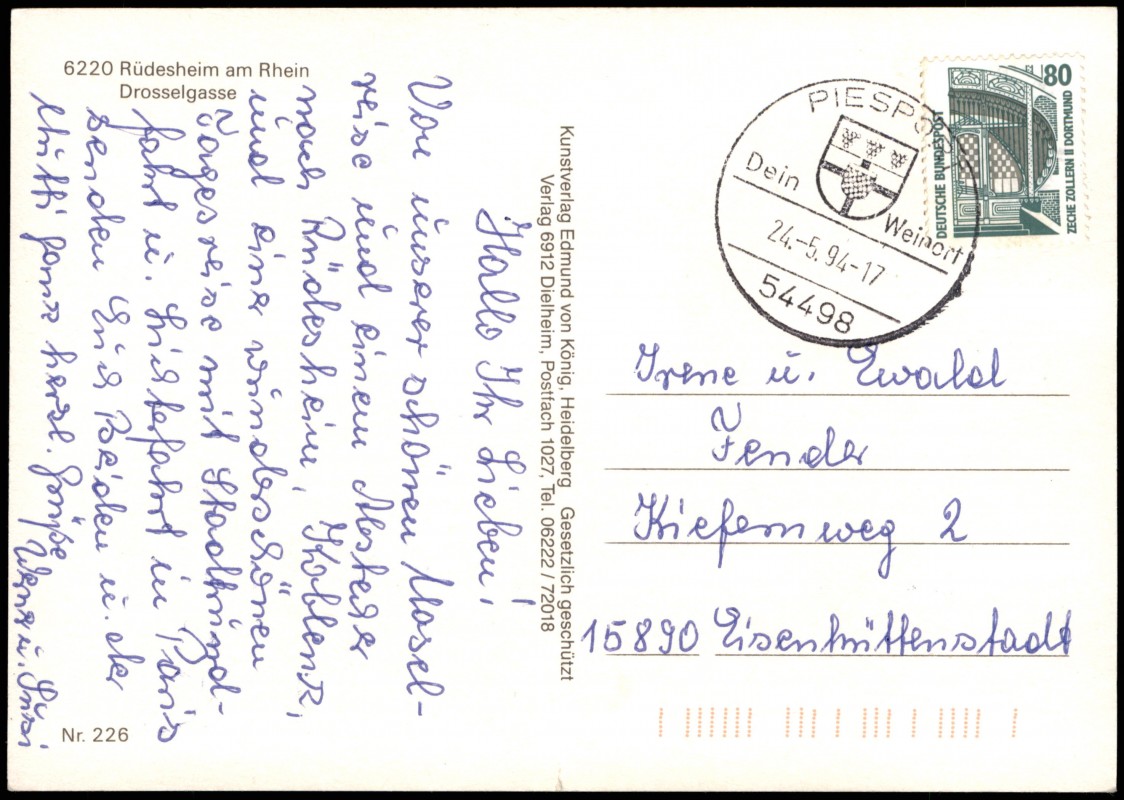 6220 Rüdesheim am Rhein
Drosselgasse
Hallo Ihr Lieben!
Von unserer schönen Mosel-
reise und einem Abstecher
nach Rüdesheim, Koblenz,
und einer wunderschönen
Tagesreise mit Stadtrund-
fahrt u. Lichterfahrt in Paris
senden Euch Beiden u. der
Mutti ganz herzl. Grüße
Werner u. Susi
Nr. 226
Kunstverlag Edmund von König, Heidelberg Gesetzlich geschützt
Verlag 6912 Dielheim, Postfach 1027, Tel. 06222 / 72018
PIESPORT
Dein Weinort
24.-5.94-17
54498
80
DEUTSCHE BUNDESPOST
ZECHE ZOLLERN II DORTMUND
Irene u. Ewald
Fender
Kiefernweg 2
15890 Eisenhüttenstadt